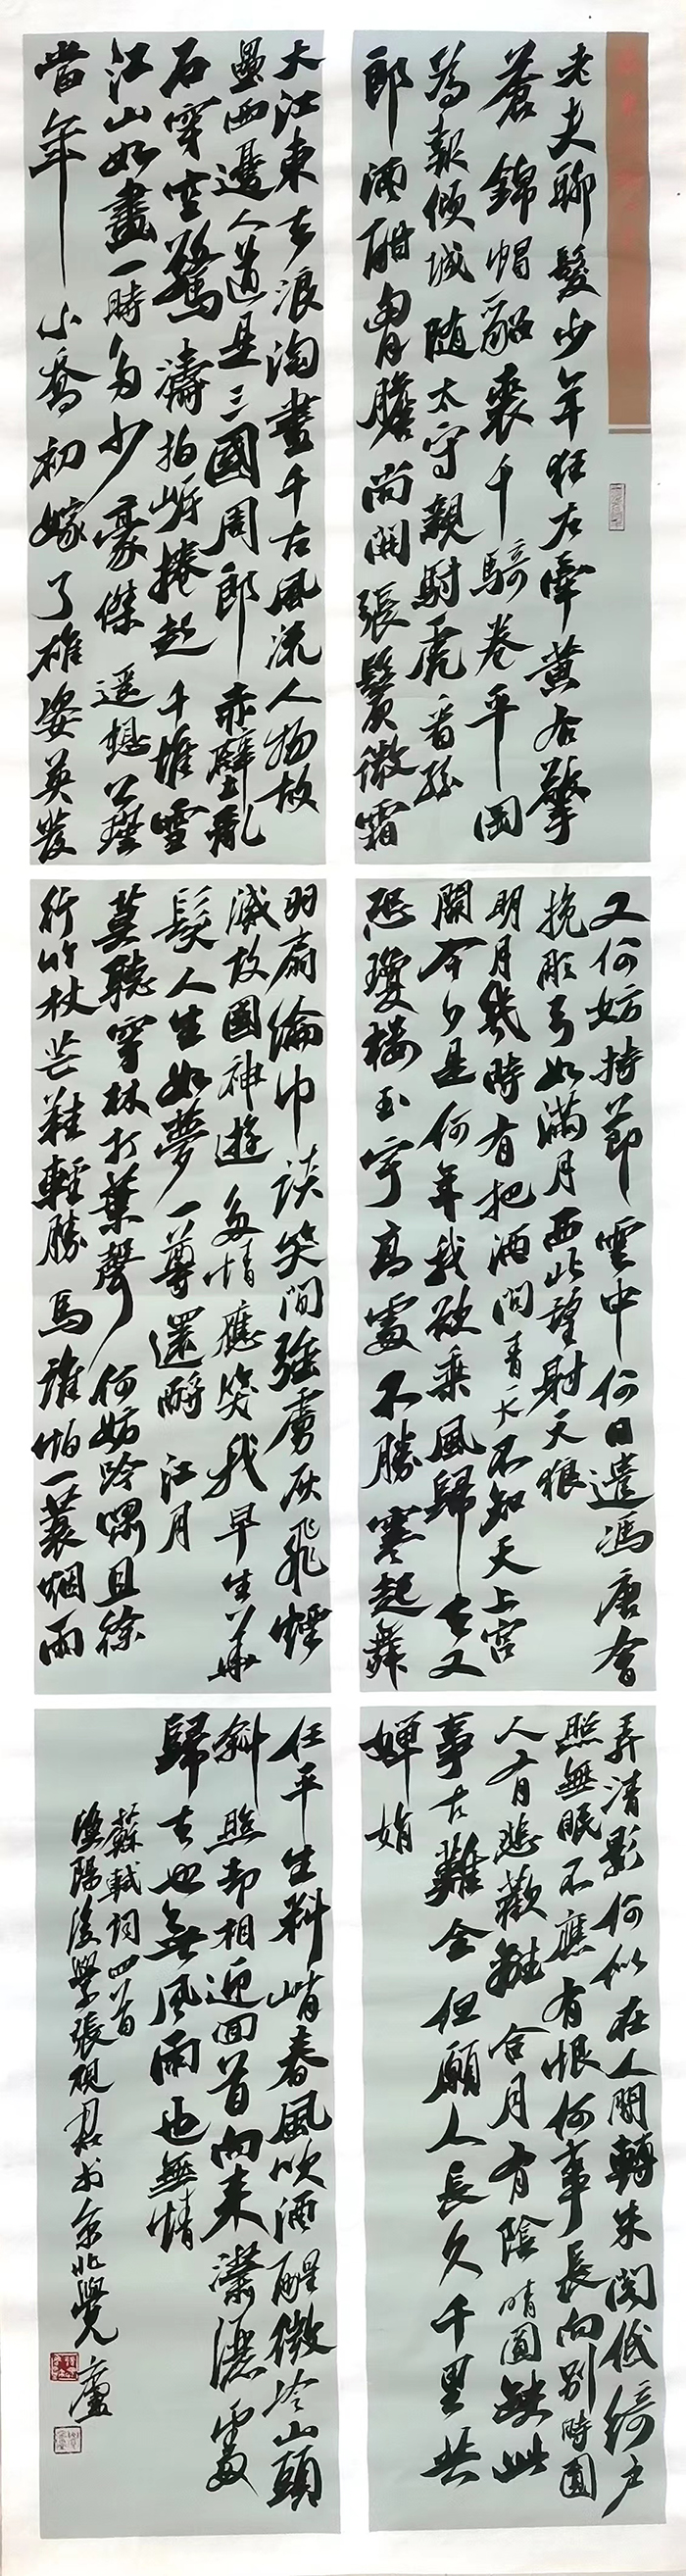 老夫聊髮少年狂左牽黃右擎
蒼錦帽貂裘千騎卷平岡
為報傾城隨太守親射虎看孫
郎酒酣胸膽尚開張鬢微霜
又何妨持節雲中何日遣馮唐會
挽彫弓如滿月西北望射天狼
明月幾時有把酒問青天不知天上宮
闕今夕是何年我欲乘風歸去又
恐瓊樓玉宇高處不勝寒起舞
弄清影何似在人間轉朱閣低綺戶
照無眠不應有恨何事長向別時圓
人有悲歡離合月有陰晴圓缺此
事古難全但願人長久千里共
嬋娟
大江東去浪淘盡千古風流人物故
壘西邊人道是三國周郎赤壁亂
石穿空驚濤拍岸捲起千堆雪
江山如畫一時多少豪傑遙想公瑾
當年小喬初嫁了雄姿英發
羽扇綸巾談笑間強虜灰飛煙
滅故國神遊多情應笑我早生華
髮人生如夢一尊還酹江月
莫聽穿林打葉聲何妨吟嘯且徐
行竹杖芒鞋輕勝馬誰怕一蓑烟雨
任平生料峭春風吹酒醒微冷山頭
斜照却相迎回首向來瀟灑處
歸去也無風雨也無情
蘇軾詞四首
陽後學張硯君京北覺廬